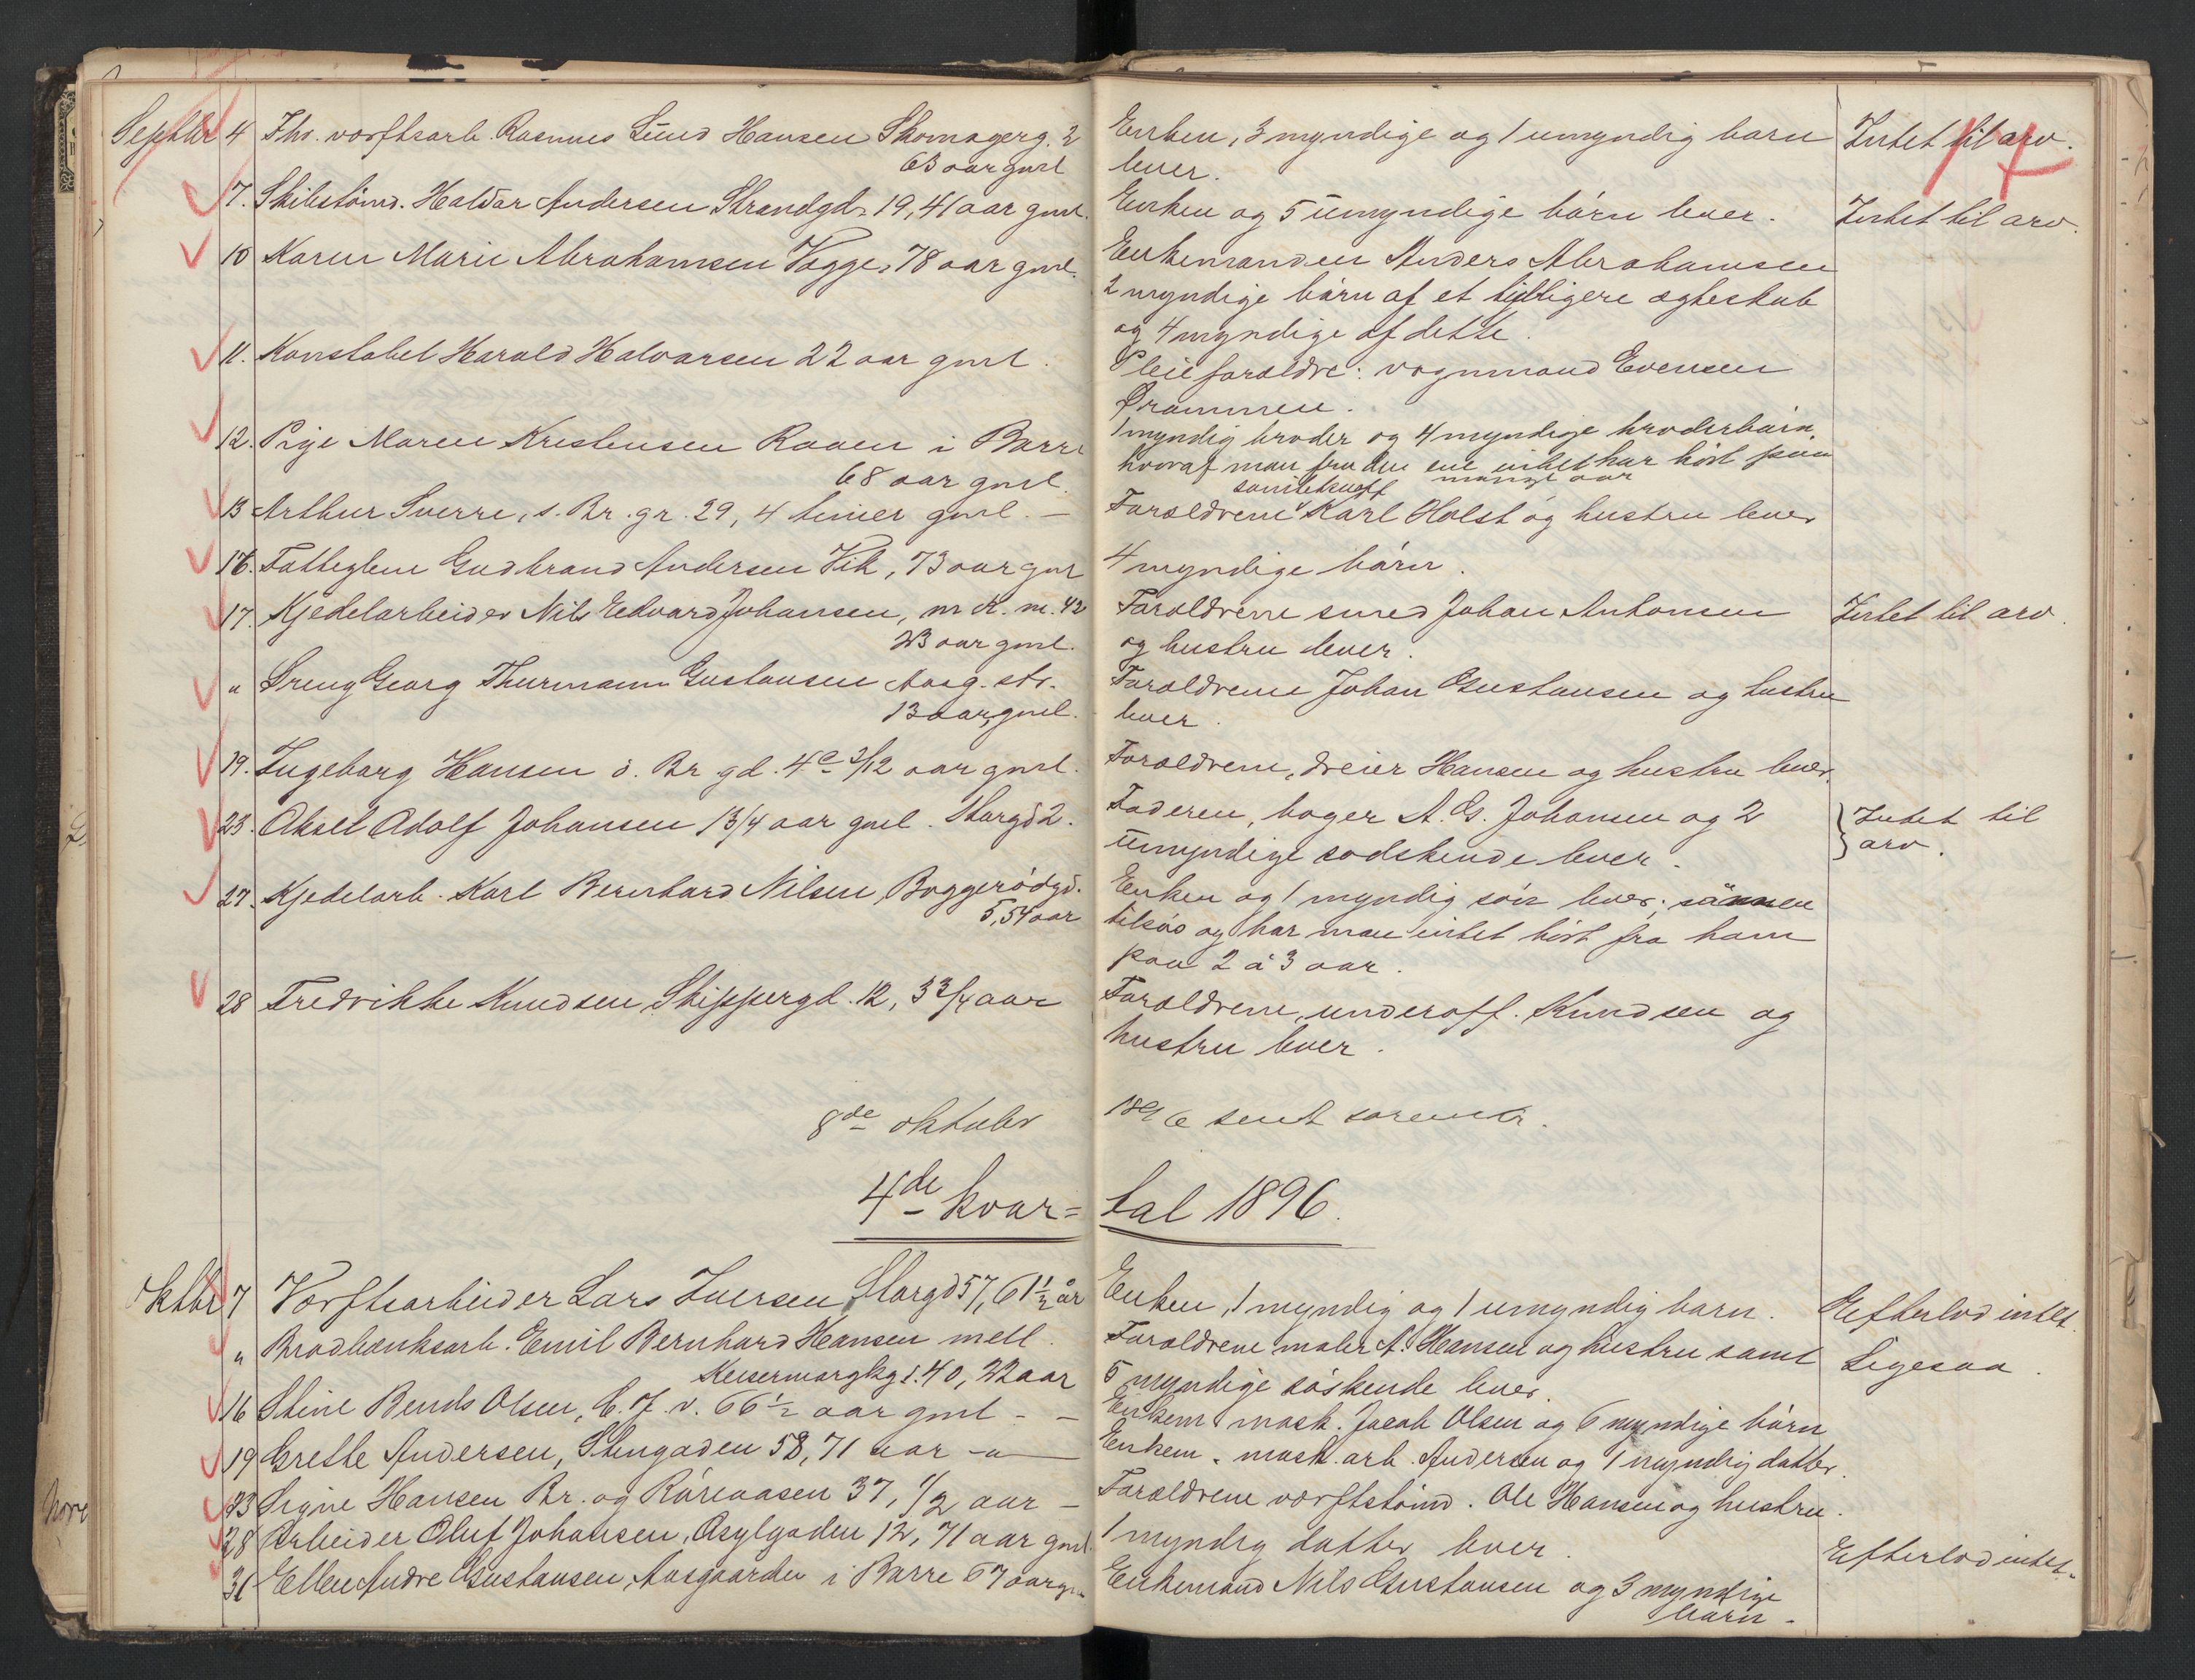 Septbr 4 Fhv. værftsarb. Rasmus Lund Hansen Skomagerg. 2
63 aar gml
7. Skibstømd. Haldor Andersen Strandgd. 19, 41 aar gml.
10 Karen Marie Abrahamsen Vagge, 78 aar gml.
11. Konstabel Harald Halvorsen 22 aar gml.
12. Pige Maren Kristensen Raaen i Borre
68 aar gml.
13 Arthur Sverre, s. Br. gr. 29, 4 timer gml. —
16. Fattiglem Gudbrand Andersen Vik, 73 aar gml
17. Kjedelarbeider Nils Edvard Johansen, m. K. m. 42
23 aar gml.
" Dreng Georg Thurmann Gustavsen Aasg. str.
13 aar gml.
19. Ingeborg Hansen ö. Br. gd. 4c 3/12 aar gml.
23. Aksel Adolf Johansen 13/4 aar gml. Storgd 2.
27. Kjedelarb. Karl Bernhard Nilsen, Boggerödgd.
5, 54 aar
28 Fredrikke Knudsen, Skippergd. 12, 3 3/4 aar
8de oktober
4de kvar=
Oktbr 7 Værftsarbeider Lars Iversen, Storgd 57, 61 1/2 år
" Brødbænksarb. Emil Bernhard Hansen mell.
Keisermarykg: 40, 22 aar
16 Stine Bends Olsen, C. J. v. 66 1/2 aar gml - -
19 Grethe Andersen, Stengaden 58, 71 aar -"-
23 Signe Hansen Br. og Röreaasen 37, 1/2 aar -
28 Arbeider Oluf Johansen, Asylgaden 12, 71 aar gml.
31 Ellen Andre Gustavsen, Aasgaarden i Borre 67 aar gm
Enken, 3 myndige og 1 umyndig barn
lever.
Enken og 5 umyndige börn lever.
Enkemanden Anders Abrahamsen
2 myndige börn af et tidligere ægteskab
og 4 myndige af dette.
Pleieforældre: vognmand Evensen
Drammen.
1 myndig broder og 4 myndige broderbörn,
hvoraf man fra den ene intet har hört paa
mange aar
sanitetsuoff
Forældrene Karl Holst og hustru lever
4 myndige börn.
Forældrene smed Johan Antonsen
og hustru lever.
Forældrene Johan Gustavsen og hustru
lever.
Forældrene, dreier Hansen og hustru lever.
Faderen, bager A. G. Johansen og 2
umyndige sødskende lever.
Enken og 1 myndig sön lever; sönnen
tilsøs og har man intet hört fra ham
paa 2 à 3 aar.
Forældrene, underoff. Knudsen og
hustru lever.
1896 sendt sorenskr.
tal 1896.
Enken, 1 myndig og 1 umyndig barn.
Forældrene maler A. Hansen og hustru samt
5 myndige söskende lever.
Enkem. mask. Jacob Olsen og 6 myndige börn
Enkem. mask. arb. Andersen og 1 myndig datter.
Forældrene værftstömd. Ole Hansen og hustru.
1 myndig datter lever.
Enkemand Nils Gustavsen og 3 myndige
börn -
Intet til arv.
17
Intet til arv.
Intet til arv.
Intet til
arv.
Efterlod intet.
Ligesaa.
Efterlod intet.